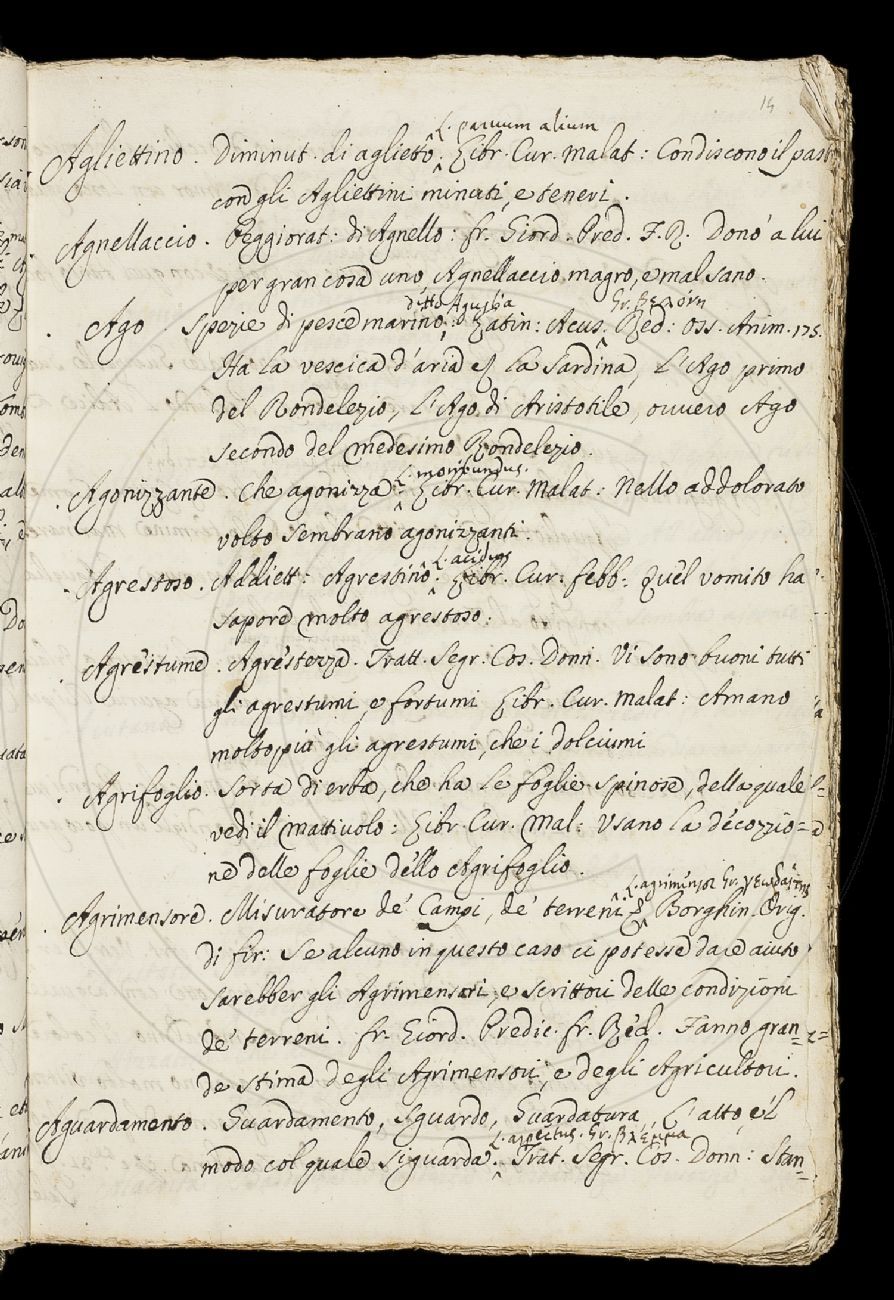 14
L. parvum alium
Agliettino . Diminut. di aglietto. Libr. Cur. Malat: Condiscono il past
con gli Agliettini minuti, e teneri .
Agnellaccio . Peggiorat: di Agnello: fr. Giord. Pred. F. R. Donò a lui
per gran cosa uno Agnellaccio magro, e mal sano .
detto Aguglia Gr. βελόνη
Ago Spezie di pesce marino; Latin: Acus. Red: Oss. Anim. 175.
Ha la vescica d'aria la Sardina, L'Ago primo
del Rondelezio, L'Ago di Aristotile, ovvero Ago
secondo del medesimo Rondelezio .
L. moribundus.
Agonizzante . Che agonizza: Libr. Cur. Malat: Nello addolorato
volto sembrano agonizzanti .
L. acidus
Agrestoso . Addiett: Agrestino. Libr. Cur. febb: Quel vomito ha
sapore molto agrestoso:
Agrestume . Agrestezza . Tratt. Segr. Cos. Donn. Vi sono buoni tutti
gli agrestumi, e fortumi Libr. Cur. Malat: Amano
molto più gli agrestumi, che i dolciumi
Agrifoglio . Sorta di erba, che ha le foglie spinose, della quale
vedi il Mattiuolo: Libr. Cur. Mal: Usano la decozzio=
ne delle foglie dello Agrifoglio .
L. agrimensor Gr. γεωδαίτης
Agrimensore . Misuratore de' Campi, de' terreni: Borghin. Orig.
di fir: Se alcuno in questo caso ci potesse dare aiuto
sarebber gli Agrimensori, e scrittori delle condizioni
de' terreni . fr. Giord. Predic. fr. Red. Fanno gran=
de stima degli Agrimensori, e degli Agricultori .
Aguardamento . Guardamento, sguardo, Guardatura, L'atto, e'l
L. aspectus. Gr. βλέμμα
modo col quale si guarda. Trat. Segr. Cos. Donn: Stan=